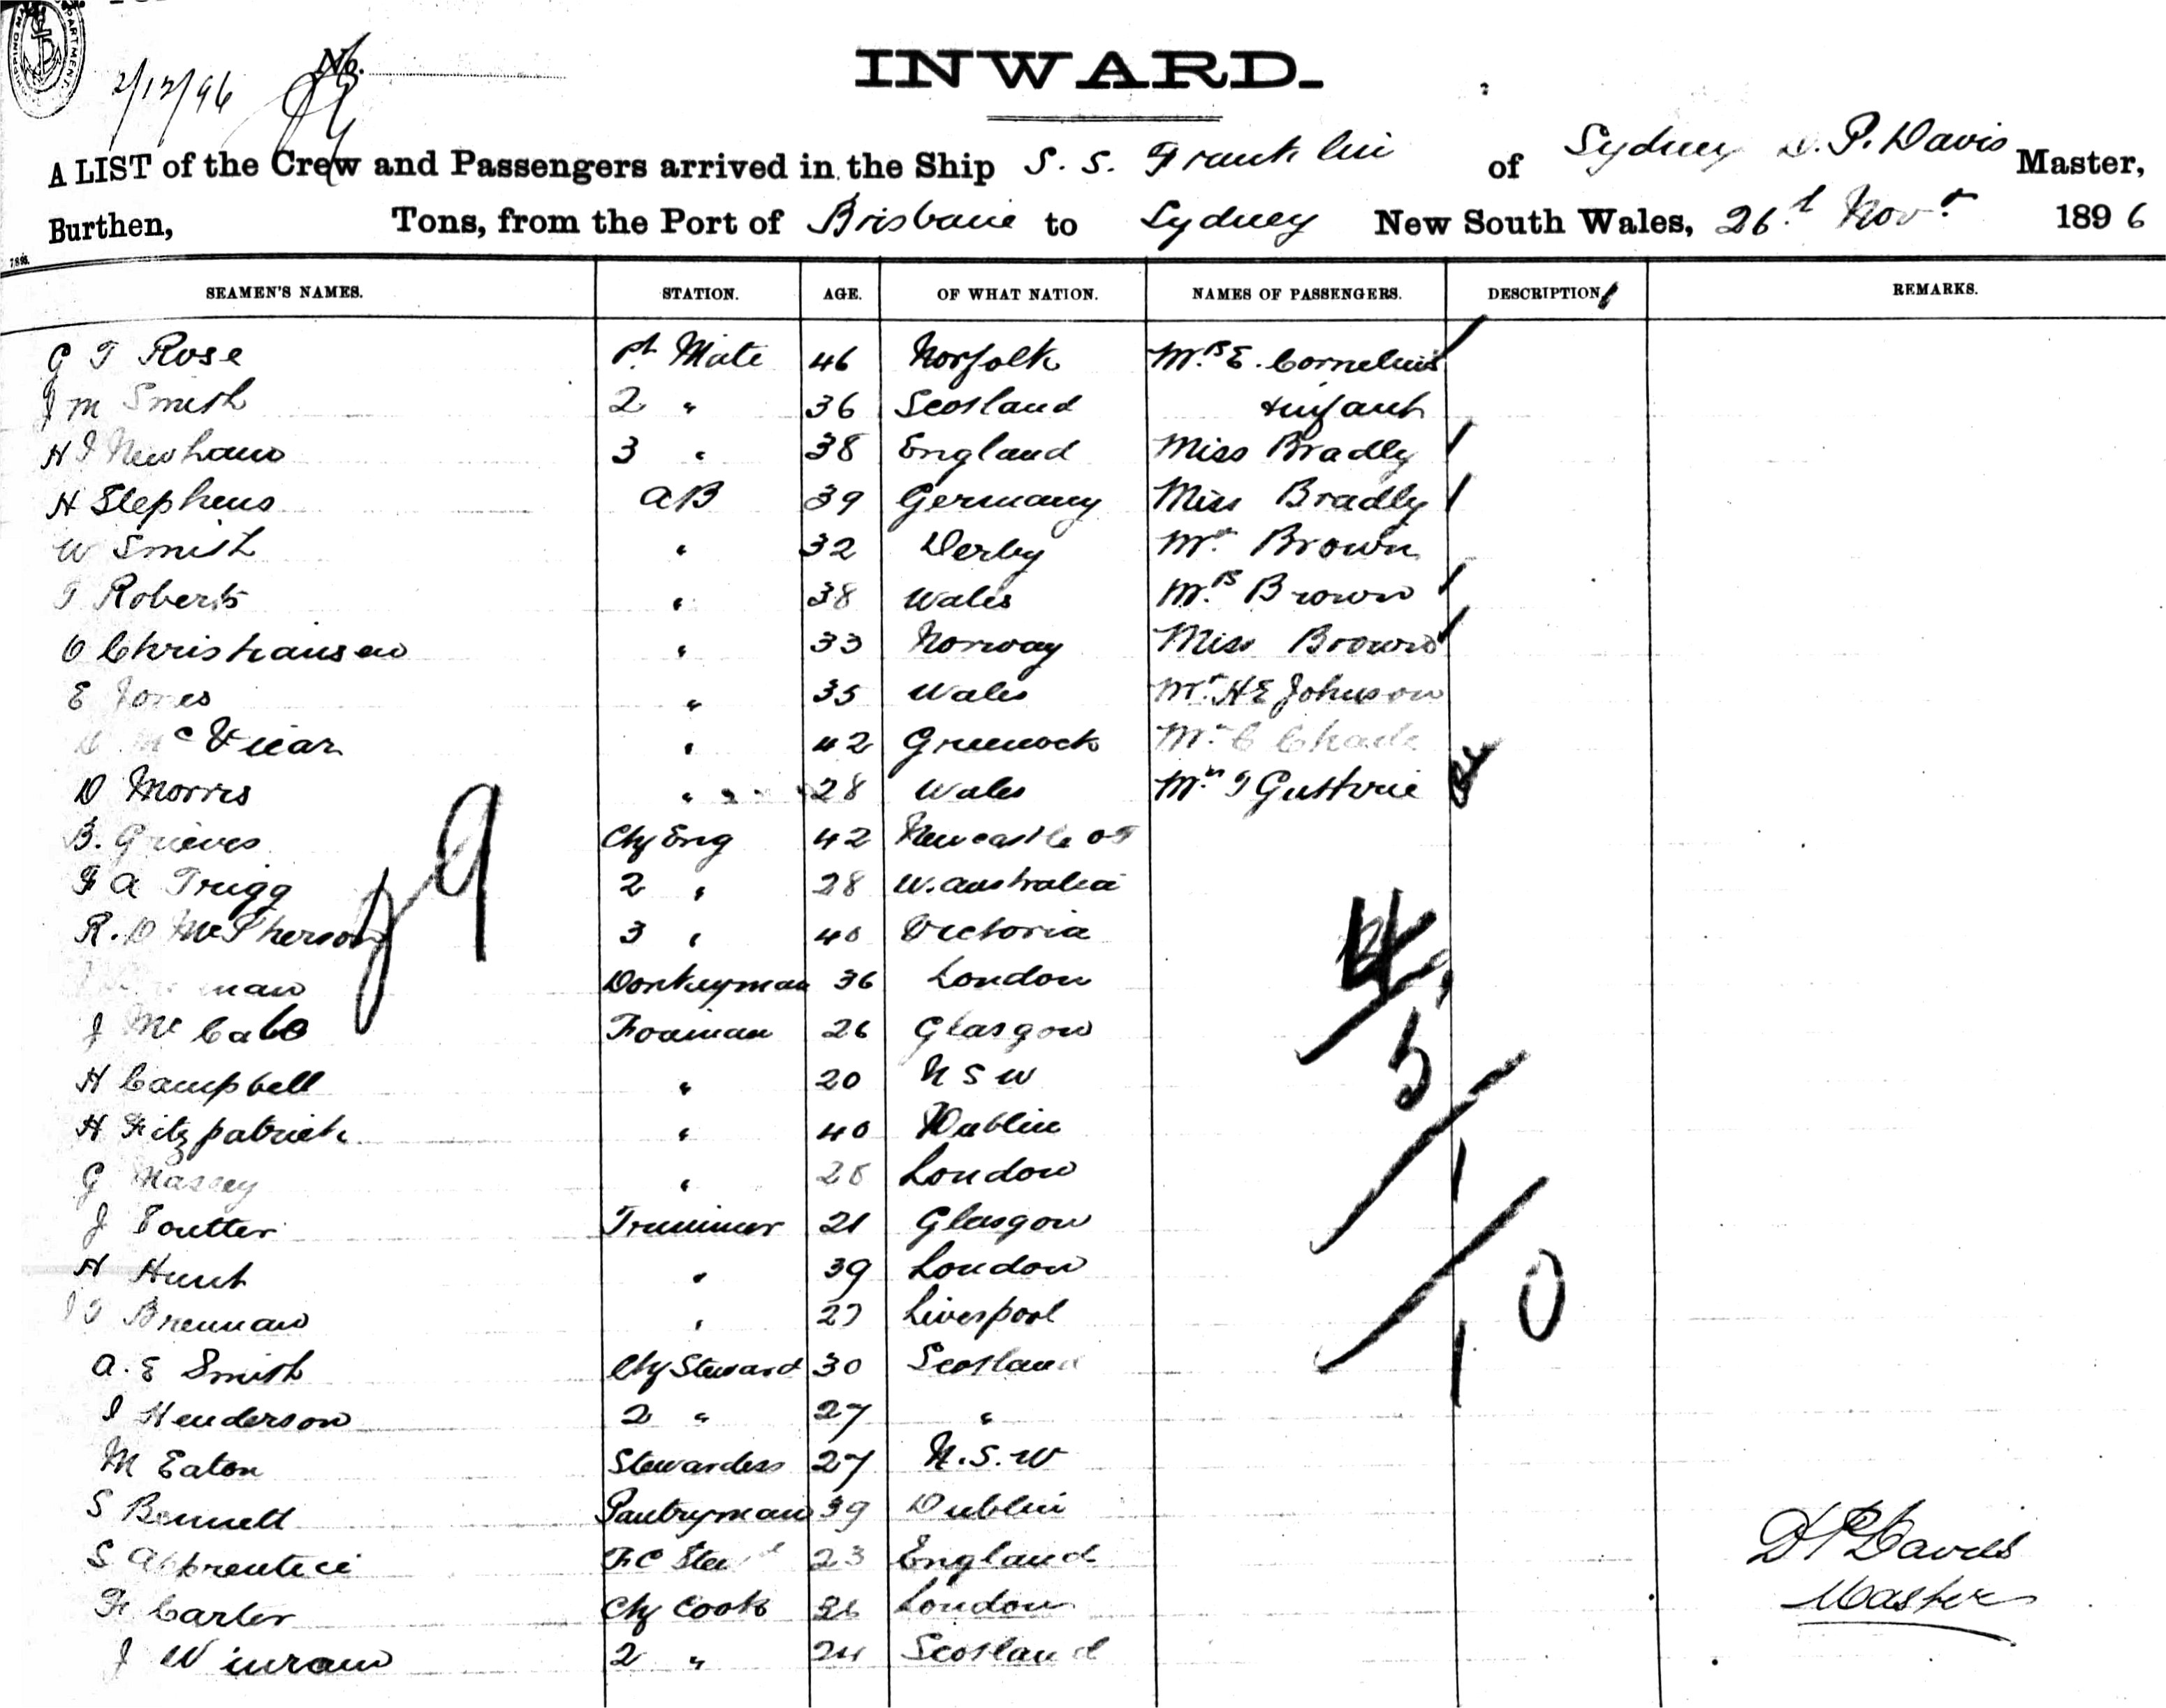 2/12/96 No.
INWARD.
A LIST of the Crew and Passengers arrived in the Ship S. S. Franklin of Sydney D. P. Davis Master,
Burthen, Tons, from the Port of Brisbane to Sydney New South Wales, 26th Novr 1896
SEAMEN'S NAMES. STATION. AGE. OF WHAT NATION. NAMES OF PASSENGERS. DESCRIPTION REMARKS.
G T Rose 1st Mate 46 Norfolk Mrs E. Cornelius
J M Smith 2 " 36 Scotland & infant
H J Newham 3 " 38 England Miss Bradly
H Stephens AB 39 Germany Miss Bradly
W Smith " 32 Derby Mr Brown
T Roberts " 38 Wales Mrs Brown
O Christiansen " 33 Norway Miss Brown
E Jones " 35 Wales Mr H E Johnson
Mc Vicar " 42 Greenock Mr C
D Morris " 28 Wales Mr T Guthrie
B. Grieves Chf Eng 42 Newcastle oT
F A Trigg 2 " 28 W. Australia
R. D McPherson 3 " 40 Victoria
Donkeyman 36 London
J McCabe Foaiman 26 Glasgow
H Campbell " 20 N S W
H Fitzpatrick " 40 Dublin
G Massey " 28 London
J Poutter Trimmer 21 Glasgow
H Hunt " 39 London
J T Brennan " 27 Liverpool
A. E Smith Chf Steward 30 Scotland
J Henderson 2 " 27 "
M Eaton Stewardess 27 N. S. W
S Bennett Pantryman 39 Dublin
S Apprentice F C Stewd 23 England
F Carter Chf Cook London
J Winram 2 " 24 Scotland
9
5
10
D P Davis
Master